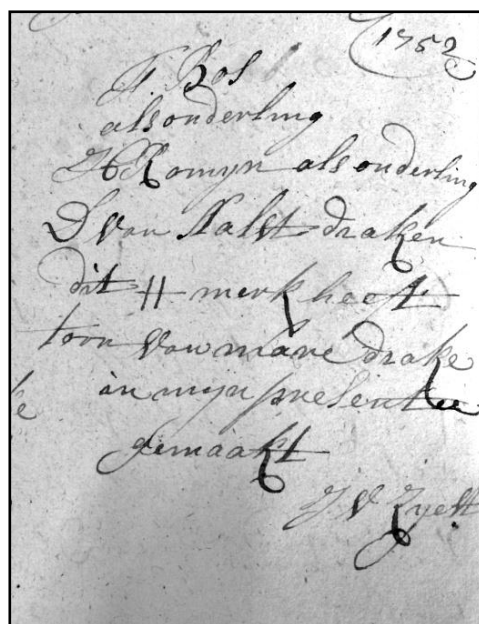 1752
Bos
als onderling
H Romyn als onderling
D van Aalst draken
dit || merk heeft
toon drake
in myn presentee
gemaakt
J V Zyelt
ke